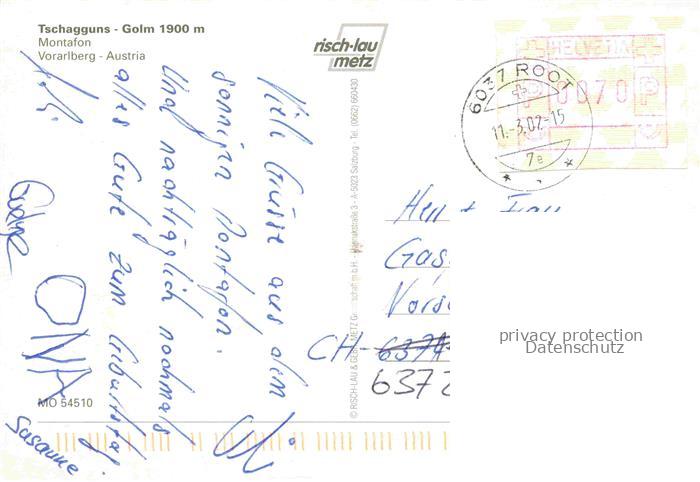 Tschagguns - Golm 1900 m
Montafon
Vorarlberg - Austria
risch-lau
metz
HELVETIA
P 0070 P
6037 ROOT
11.-3.02-15
7e
Viele Grüsse aus dem
sonnigen Montafon.
Und nachträglich nochmals
alles Gute zum Geburtstag
ONA
Susanne
© RISCH-LAU & GEBR. METZ
A-5023 Salzburg · Tel. (0662) 660430
Herr + Frau
CH- 6374
6372
MO 54510
privacy protection
Datenschutz